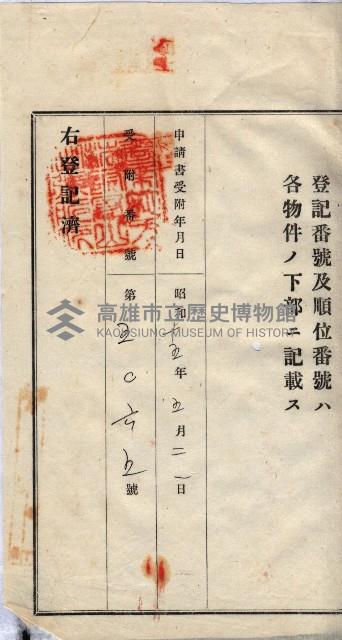 登記番號及順位番號ハ
各物件ノ下部ニ記載ス
申請書受附年月日
昭和十五年五月二一日
受附番號
第五〇六五號
右登記濟
高雄市立歷史博物館
KAOHSIUNG MUSEUM OF HISTORY